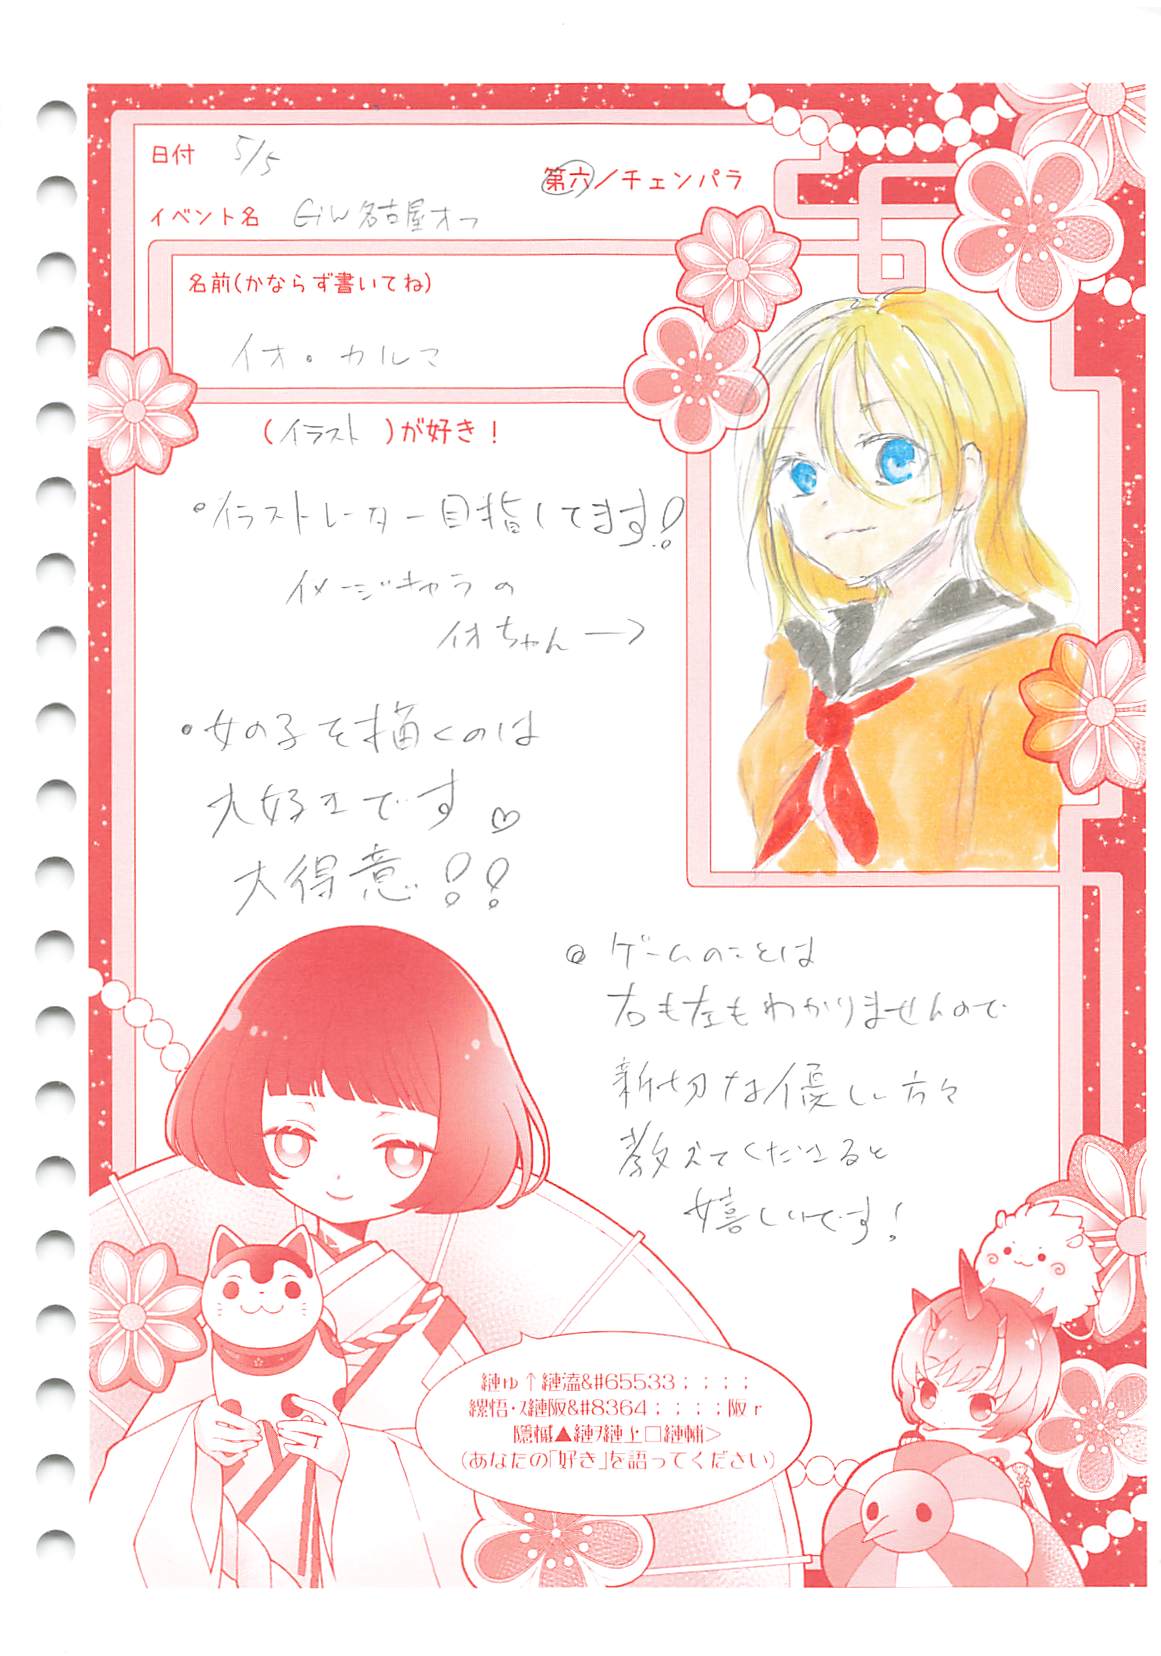 日付 5/5
第六/チェンパラ
イベント名 Giw名古屋オフ
名前(かならず書いてね)
イオ・カルマ
(イラスト)が好き!
・イラストレーター目指してます!
イメージキャラの
イオちゃん→
・女の子を描くのは
大好きです♡
大得意!!
・ゲームのことは
右も左もわかりませんので
新切な優しい方々
教えてくださると
嬉しいです!
縺ゅ↑縺溘&#65533;;;;
縲悟・ｽ縺阪&#8364;;;;阪r
隱槭▲縺ｦ縺上□縺輔>
(あなたの「好き」を語ってください)